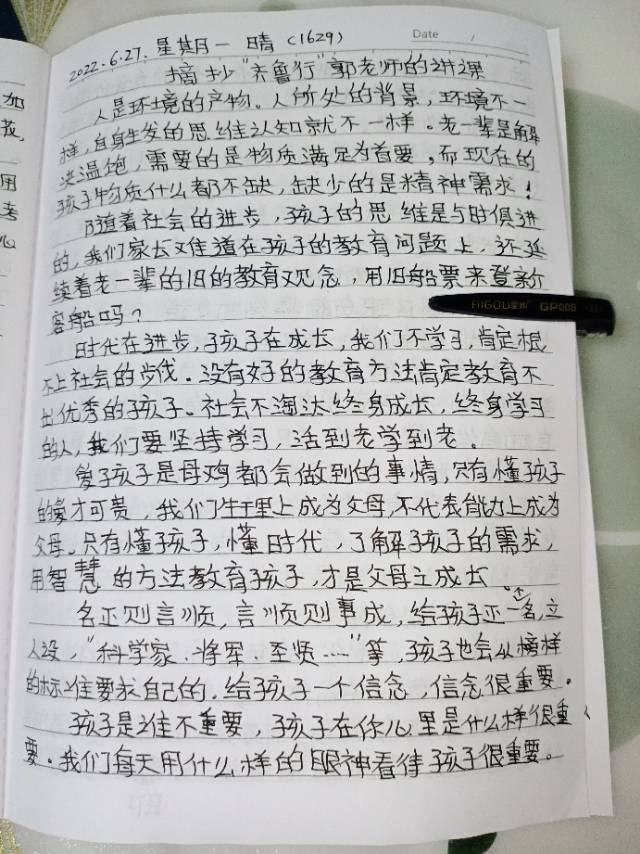 2022.6.27. 星期一 晴 (1629)
Date /
摘抄"齐鲁行"郭老师的讲课
人是环境的产物。人所处的背景,环境不一
样,自身生发的思维认知就不一样。老一辈是解
决温饱,需要的是物质满足为首要,而现在的
孩子物质什么都不缺,缺少的是精神需求!
随着社会的进步,孩子的思维是与时俱进
的,我们家长难道在孩子的教育问题上,还延
续着老一辈的旧的教育观念,用旧船票来登新
客船吗?
AIGOU GP008
时代在进步,孩子在成长,我们不学习,肯定根
不上社会的步伐。没有好的教育方法肯定教育不
出优秀的孩子。社会不淘汰终身成长,终身学习
的人,我们要坚持学习,活到老学到老。
爱孩子是母鸡都会做到的事情,只有懂孩子
的爱才可贵,我们生理上成为父母,不代表能力上成为
父母。只有懂孩子,懂时代,了解孩子的需求,
用智慧的方法教育孩子,才是父母主成长
名正则言顺,言顺则事成,给孩子正一名,立
人设,"科学家、将军、圣贤……"等,孩子也会从榜样
的标准要求自己的,给孩子一个信念,信念很重要。
孩子是谁不重要,孩子在你心里是什么样很重
要。我们每天用什么样的眼神看待孩子很重要。
加
我,
用
考
心